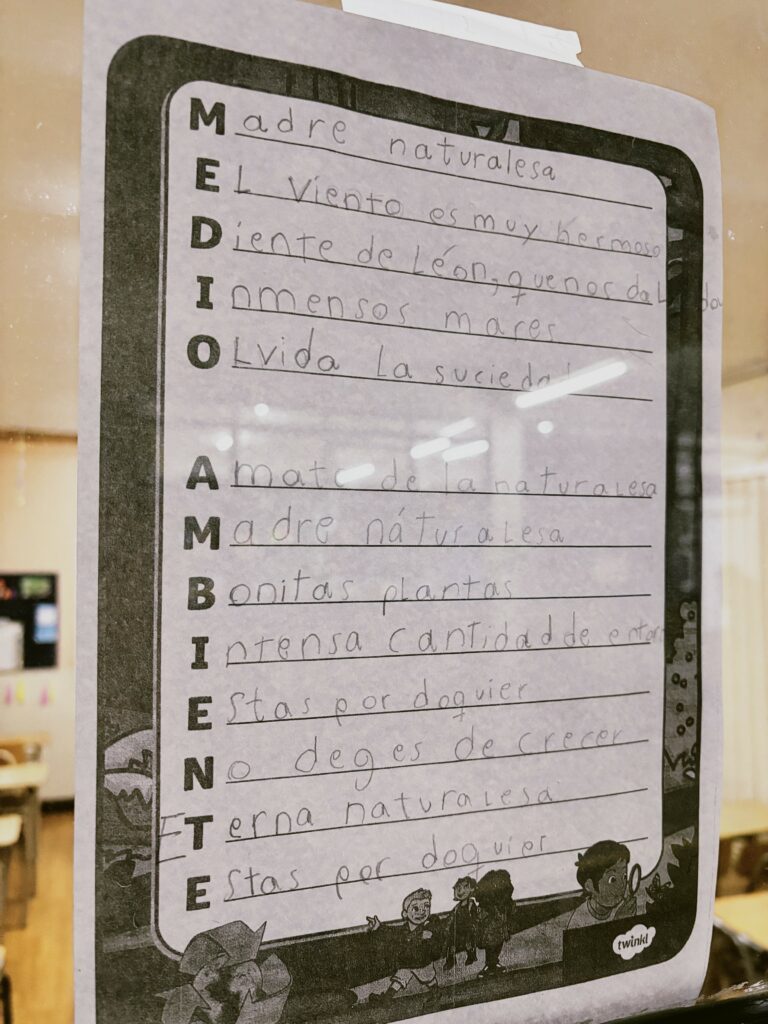 Madre naturalesa
EL viento es muy hermoso
Diente de Léon, que nos da La vida
Inmensos mares
OLvida La suciedad
Amate de la naturaLesa
Madre náturaLesa
Bonitas plantas
Intensa cantidad de
Estas por doquier
No deges de crecer
Eterna naturaLesa
Estas por doquier
twinkl